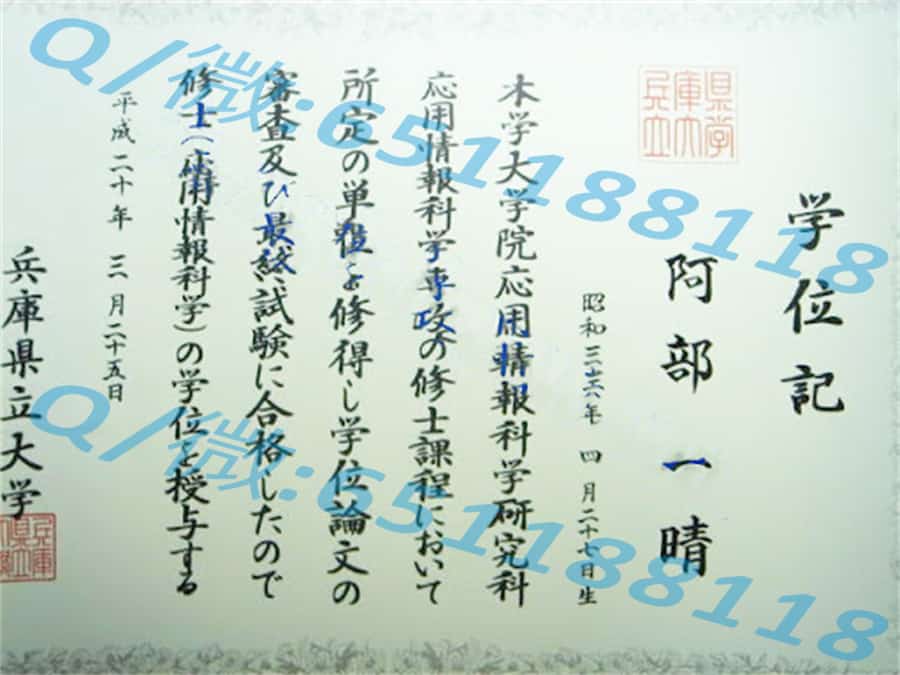 学位記
兵庫県立大学
阿部一晴
昭和三十六年 四月二十七日生
本学大学院応用情報科学研究科
応用情報科学専攻の修士課程において
所定の単位を修得し学位論文の
審査及び最終試験に合格したので
修士(応用情報科学)の学位を授与する
平成二十年 三月二十五日
兵庫県立大学
Q/微:651188118
Q/微:651188118